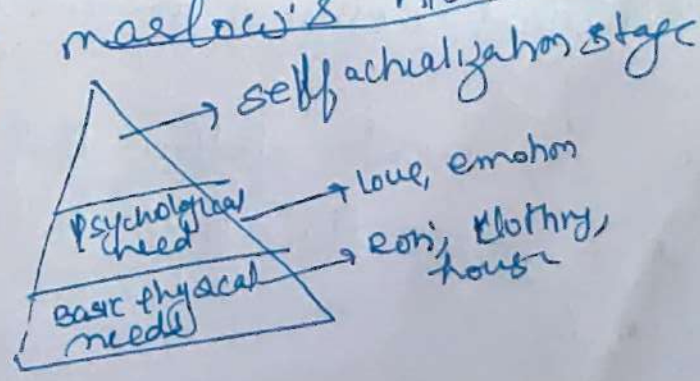 maslow's
self actualization stage
Psychological
need
Love, emotion
Basic physical
needs
clothing,
house